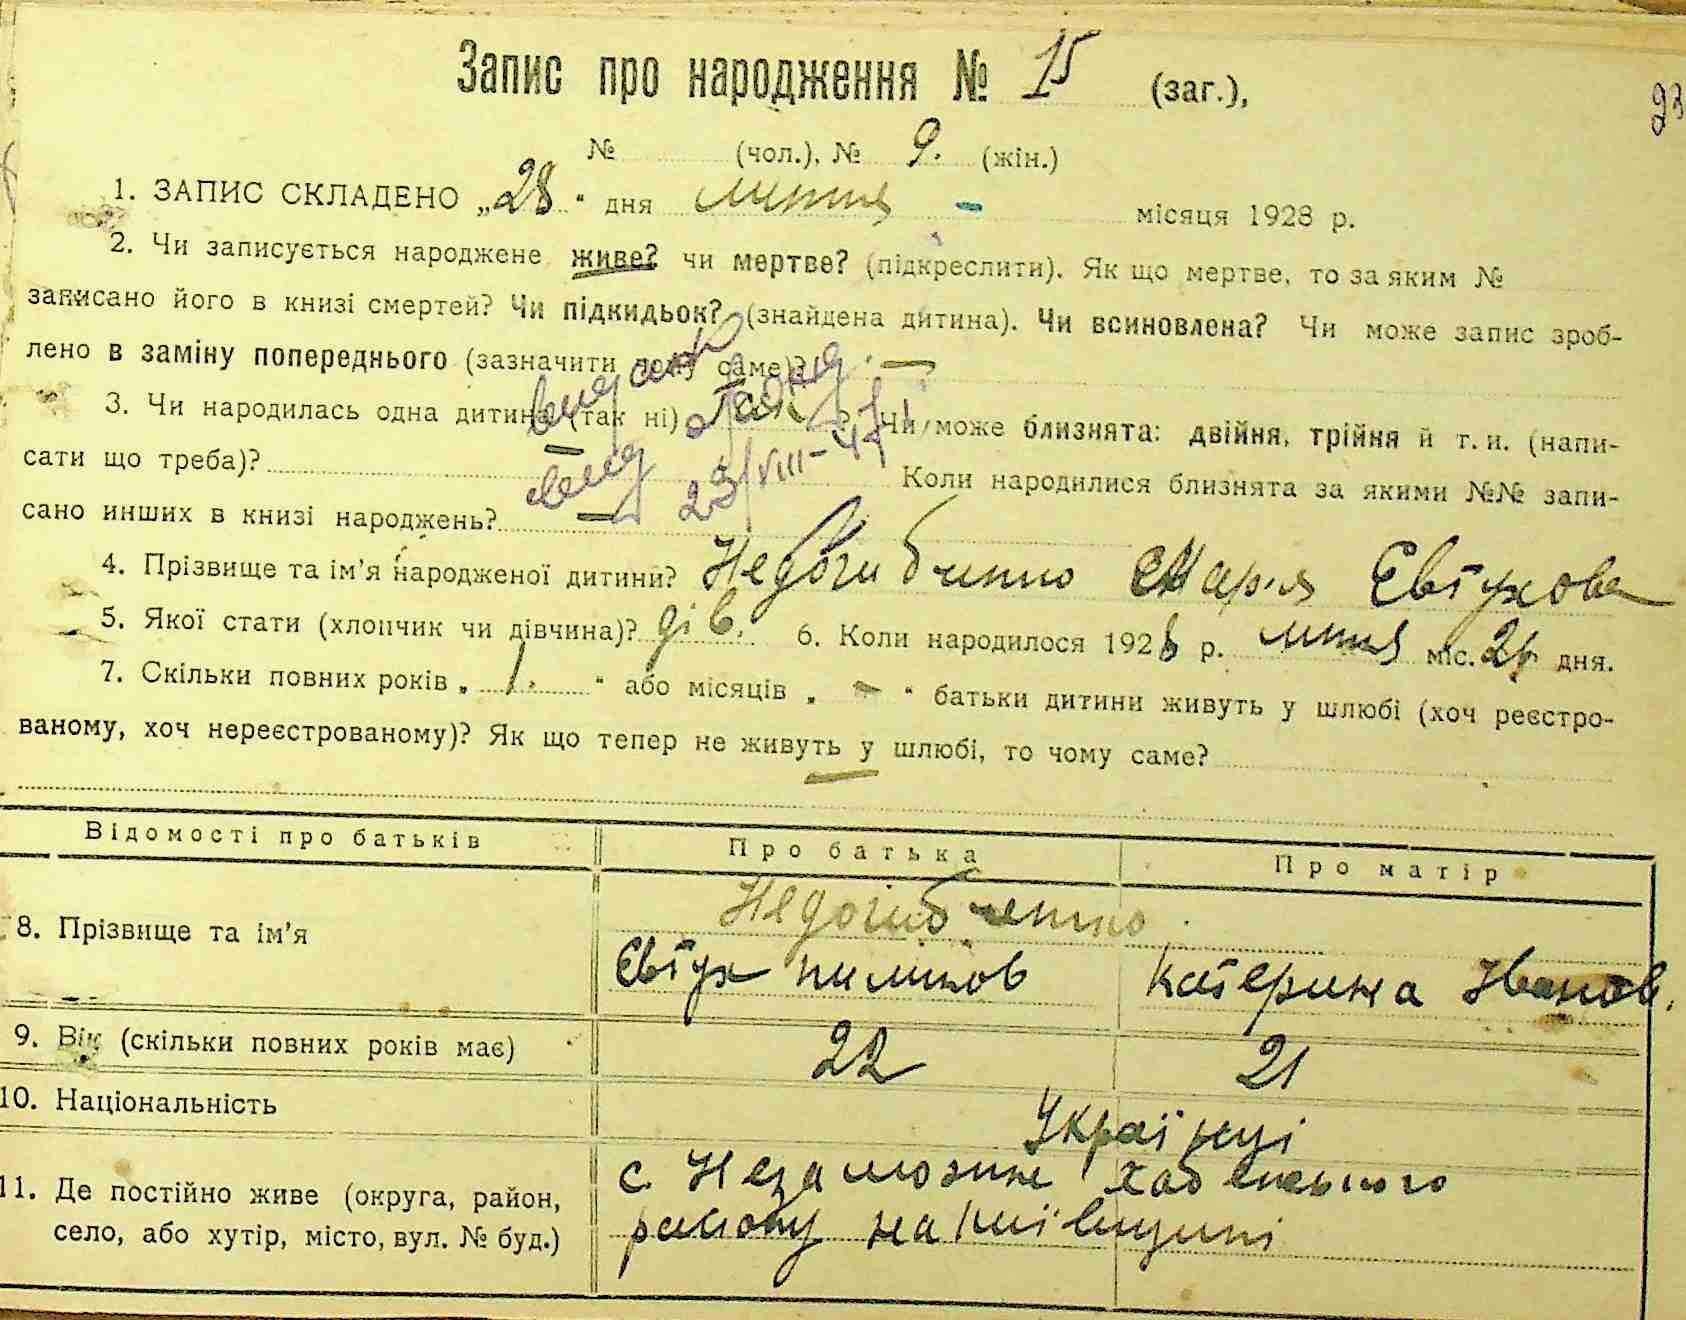 Запис про народження № 15 (заг.),
23
№ (чол.), № 9. (жін.)
1. ЗАПИС СКЛАДЕНО „28“ дня липня - місяця 1928 р.
2. Чи записується народжене живе? чи мертве? (підкреслити). Як що мертве, то за яким №
записано його в книзі смертей? Чи підкидьок? (знайдена дитина). Чи всиновлена? Чи може запис зроб-
лено в заміну попереднього (зазначити чому саме)? —
3. Чи народилась одна дитина (так ні) так ? Чи може близнята: двійня, трійня й т. и. (напи-
сати що треба)? — Коли народилися близнята за якими №№ запи-
сано инших в книзі народжень? —
23/VIII-47
4. Прізвище та ім'я народженої дитини? Недогибченко Марія Евтухова
5. Якої стати (хлопчик чи дівчина)? дів. 6. Коли народилося 1928 р. липня міс. дня.
7. Скільки повних років „ 1. “ або місяців „ - “ батьки дитини живуть у шлюбі (хоч реєстро-
ваному, хоч нереєстрованому)? Як що тепер не живуть у шлюбі, то чому саме?
—
Відомості про батьків Про батька Про матір
8. Прізвище та ім'я Недогибченко
Евтух Пилипов Катерина Іванов.
9. Вік (скільки повних років має) 22 21
10. Національність Українці
11. Де постійно живе (округа, район, село, або хутір, місто, вул. № буд.) с. Незаможне Хабенського
району на Київщині